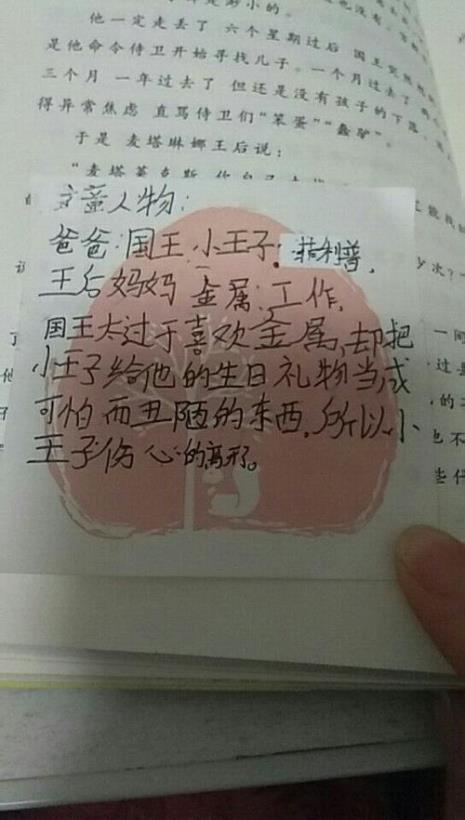 他一定走丢了 六个星期过后 国王
是他命令侍卫开始寻找儿子。一个月过去了
三个月 一年过去了 但还是没有孩子的下落
得异常焦虑 直骂侍卫们“笨蛋”“蠢驴”。
于是 麦塔琳娜王后说：
主要人物：
爸爸：国王 小王子：菲利普，
王后妈妈 金属：工作，
国王太过于喜欢金属，却把
小王子给他的生日礼物当成
可怕而丑陋的东西，所以小
王子伤心的离开。